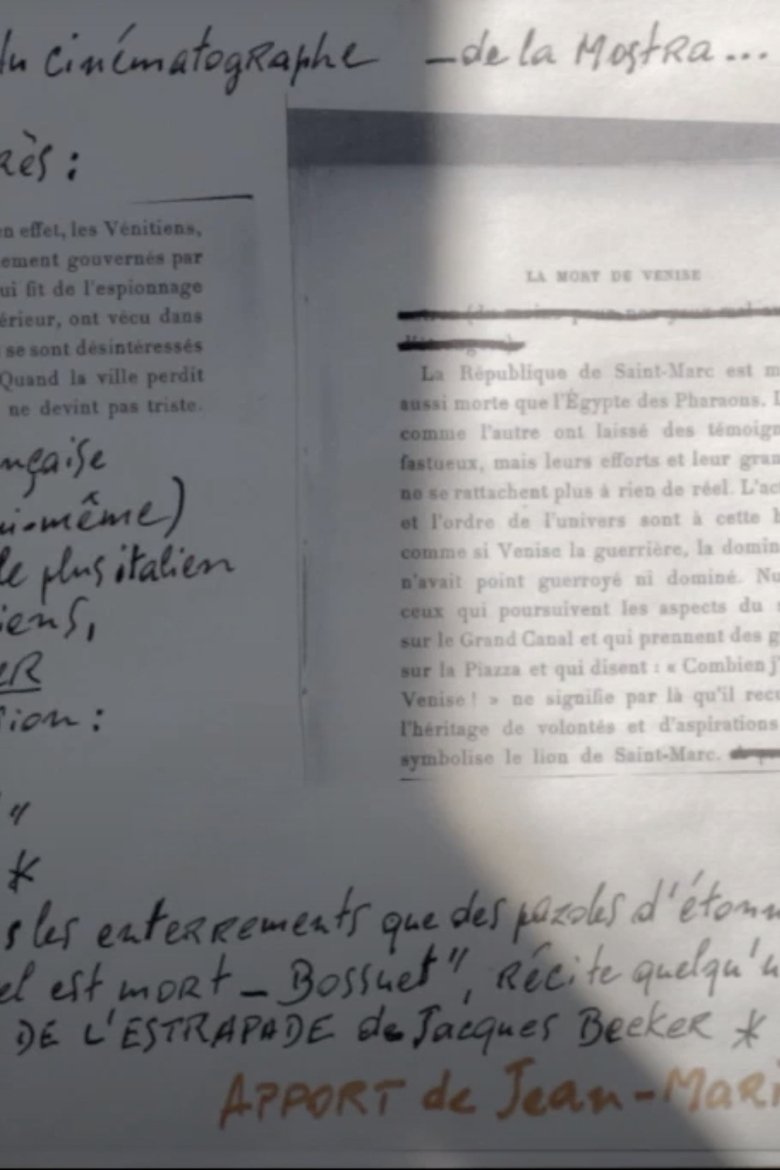 du cinématographe – de la Mostra...
rès :
en effet, les Vénitiens,
ement gouvernés par
ui fit de l'espionnage
érieur, ont vécu dans
se sont désintéressés
Quand la ville perdit
ne devint pas triste.
nçaise
ui-même)
le plus italien
iens,
ER
sion :
"
*
LA MORT DE VENISE
La République de Saint-Marc est m
aussi morte que l'Égypte des Pharaons. L
comme l'autre ont laissé des témoign
fastueux, mais leurs efforts et leur gran
ne se rattachent plus à rien de réel. L'act
et l'ordre de l'univers sont à cette h
comme si Venise la guerrière, la domin
n'avait point guerroyé ni dominé. Nu
ceux qui poursuivent les aspects du
sur le Grand Canal et qui prennent des g
sur la Piazza et qui disent : « Combien j'
Venise ! » ne signifie par là qu'il recu
l'héritage de volontés et d'aspirations
symbolise le lion de Saint-Marc.
s les enterrements que des paroles d'étonn
el est mort – Bossuet", récite quelqu'u
DE L'ESTRAPADE de Jacques Becker *
APPORT de Jean-Mari